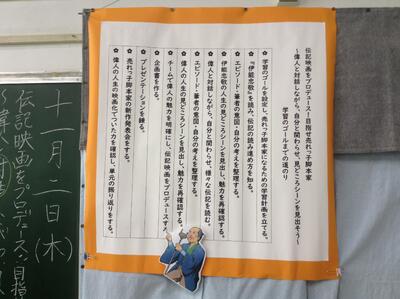 伝記映画をプロデュース！目指せ売れっ子脚本家
～偉人と対話しながら、自分と関わらせ、見どころシーンを見出そう～
学習のゴールまでの道のり
✿ 学習のゴールを設定し、売れっ子脚本家になるための学習計画を立てる。
✿ 『伊能忠敬』を読み、伝記の読み進め方を知る。
✿ エピソード・筆者の意図・自分の考えを整理する。
✿ 伊能忠敬の人生の見どころシーンを見出し、魅力を再確認する。
✿ 偉人と対話しながら、自分と関わらせ、様々な伝記を読む。
✿ エピソード・筆者の意図・自分の考えを整理する。
✿ 偉人の人生の見どころシーンを見出し、魅力を再確認する。
✿ チームで偉人の魅力を明確にし、伝記映画をプロデュースする
✿ 企画書を作る。
✿ プレゼンテーションを練る。
✿ 売れっ子脚本家の新作発表会をする。
✿ 偉人の人生の映画化でついた力を確認し、単元の振り返りをする。
十一月二日(木)
伝記映画をプロデュース！目指